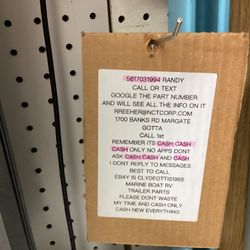 5617031994 RANDY
CALL OR TEXT
GOOGLE THE PART NUMBER
AND WILL SEE ALL THE INFO ON IT
RREEHER@NCTCORP.COM
1700 BANKS RD MARGATE
GOTTA
CALL 1st
REMEMBER ITS CASH CASH
CASH ONLY NO APPS DONT
ASK CASH CASH AND CASH
I DONT REPLY TO MESSAGES
BEST TO CALL
EBAY IS CLYDEOTTIS1958
MARINE BOAT RV
TRAILER PARTS
PLEASE DONT WASTE
MY TIME AND CASH ONLY
CASH NEW EVERYTHING